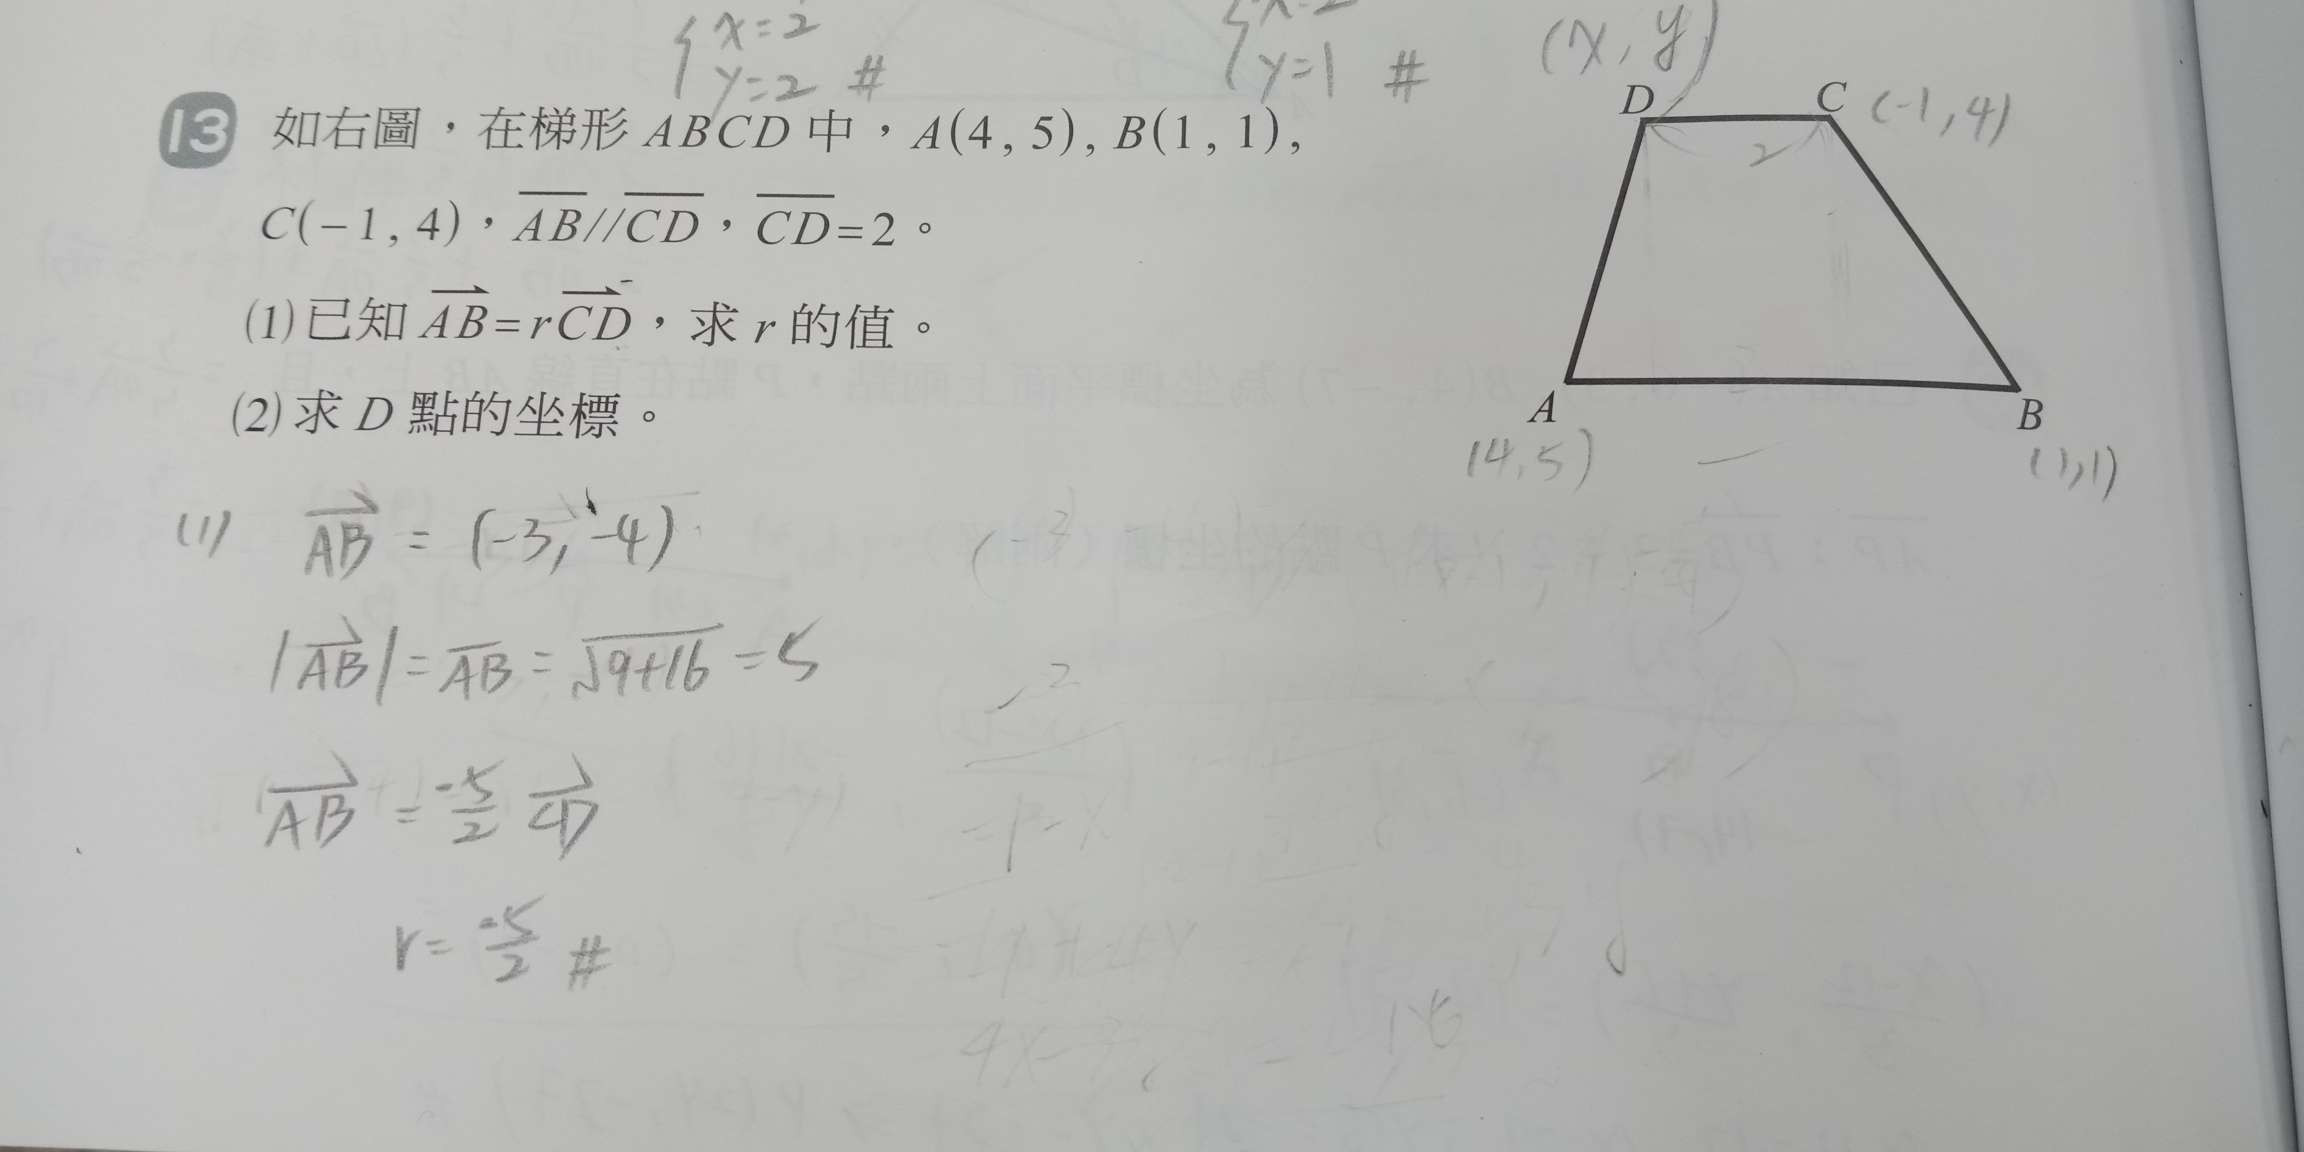 x=2
y=2 #
y=1 #
(x, y)
13 如右圖，在梯形 ABCD 中，A(4, 5), B(1, 1),
C(−1, 4)，AB//CD，CD=2。
(1)已知 AB=rCD，求 r 的值。
(2)求 D 點的坐標。
D
C
(-1, 4)
2
A
(4, 5)
B
(1, 1)
(1) AB = (-3, -4)
|AB| = AB = √9+16 = 5
AB = -5/2 CD
r = -5/2 #